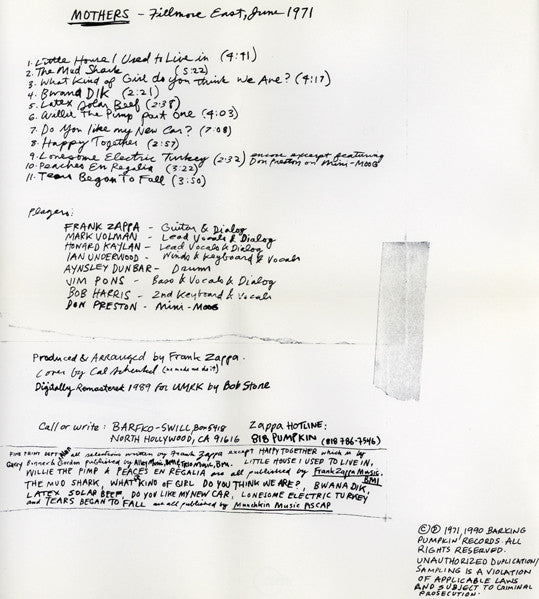 MOTHERS - Fillmore East, June 1971
1. Little House I Used to Live in (4:41)
2. The Mud Shark (5:22)
3. What Kind of Girl do you think We Are? (4:17)
4. Bwana DIK (2:21)
5. Latex Solar Beef (2:38)
6. Willie The Pimp part One (4:03)
7. Do You like my New Car? (7:08)
8. Happy Together (2:57)
9. Lonesome Electric Turkey (2:32) encore excerpt featuring Don Preston on Mini-MOOG
10. Peaches En Regalia (3:22)
11. Tears Began To Fall (3:50)
Players:
FRANK ZAPPA - Guitar & Dialog
MARK VOLMAN - Lead Vocals & Dialog
HOWARD KAYLAN - Lead Vocals & Dialog
IAN UNDERWOOD - Winds & Keyboard & Vocals
AYNSLEY DUNBAR - Drums
JIM PONS - Bass & Vocals & Dialog
BOB HARRIS - 2nd Keyboard & Vocals
DON PRESTON - Mini-MOOG
Produced & Arranged by Frank Zappa.
Cover by Cal Schenkel
Digitally Remastered 1989 for UMRK by Bob Stone
Call or write: BARFKO-SWILL, Box 5418 Zappa HOTLINE:
NORTH HOLLYWOOD, CA 91616 818 PUMPKIN (818 786-7546)
FINE PRINT DEPT. all selections written by Frank Zappa except HAPPY TOGETHER which is by
Gary Bonner & Gordon published by BMI. LITTLE HOUSE I USED TO LIVE IN,
WILLIE THE PIMP & PEACES EN REGALIA are all published by Frank Zappa Music, BMI
THE MUD SHARK, WHAT KIND OF GIRL DO YOU THINK WE ARE?, BWANA DIK,
LATEX SOLAR BEEF, DO YOU LIKE MY NEW CAR, LONESOME ELECTRIC TURKEY
and TEARS BEGAN TO FALL are all published by Munchkin Music ASCAP
©℗ 1971, 1990 BARKING
PUMPKIN RECORDS. ALL
RIGHTS RESERVED.
UNAUTHORIZED DUPLICATION/
SAMPLING IS A VIOLATION
OF APPLICABLE LAWS
AND SUBJECT TO CRIMINAL
PROSECUTION.